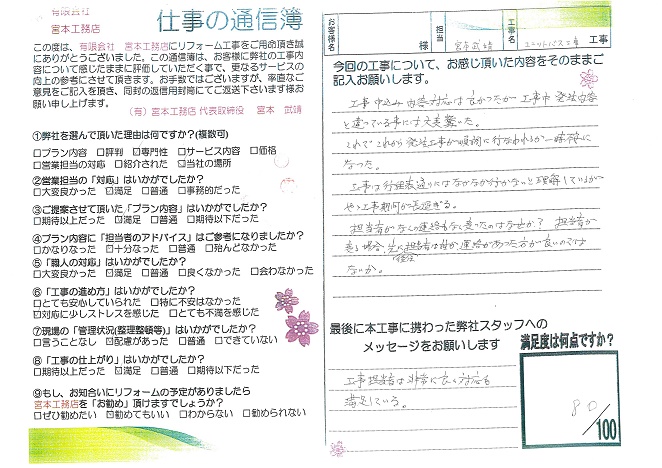 有限会社
宮本工務店
仕事の通信簿
この度は、有限会社 宮本工務店にリフォーム工事をご用命頂き誠
にありがとうございました。この通信簿は、お客様に弊社の工事内
容について感じたままに評価していただく事で、更なるサービスの
向上の参考にさせて頂きます。お手数ではございますが、率直なご
意見をご記入を頂き、同封の返信用封筒にてご返送下さいます様お
願い申し上げます。
(有)宮本工務店 代表取締役 宮本 武靖
①弊社を選んで頂いた理由は何ですか?(複数可)
□プラン内容 □評判 ☑専門性 □サービス内容 □価格
□営業担当の対応 □紹介された ☑当社の場所
②営業担当の「対応」はいかがでしたか?
□大変良かった ☑満足 □普通 □事務的だった
③ご提案させて頂いた「プラン内容」はいかがでしたか?
□期待以上だった ☑満足 □普通 □期待以下だった
④プラン内容に「担当者のアドバイス」はご参考になりましたか?
□かなりなった □十分なった ☑普通 □殆んどなかった
⑤「職人の対応」はいかがでしたか?
□大変良かった ☑満足 □普通 □良くなかった □会わなかった
⑥「工事の進め方」はいかがでしたか?
□とても安心していられた □特に不安はなかった
☑対応に少しストレスを感じた □とても不満を感じた
⑦現場の「管理状況(整理整頓等)」はいかがでしたか?
□言うことなし ☑配慮があった □普通 □できていない
⑧「工事の仕上がり」はいかがでしたか?
□期待以上だった ☑満足 □普通 □期待以下だった
⑨もし、お知合いにリフォームの予定がありましたら
宮本工務店を「お勧め」頂けますでしょうか?
□ぜひ勧めたい ☑勧めてもいい □わからない □勧められない
お客様名 様 担当 宮本武靖 工事名 ユニットバス工事 工事
今回の工事について、お感じ頂いた内容をそのままご
記入お願いします。
工事申込み内容対応は良かったが工事中発注内容
と違っている事には大変驚いた。
これでこれから発注工事が順調に行なわれるか心配に
なった。
工事は行程表通りにはなかなか行かないと理解しているが
やゝ工事期間が長過ぎる。
担当者がなんの連絡もなく来ったのはなぜか? 担当者が
来る場合、先に担当者は前 連絡があった方が良いのでは
ないか。
最後に本工事に携わった弊社スタッフへの
メッセージをお願いします
工事担当者は非常に良く対応も
満足している。
満足度は何点ですか?
80
/100